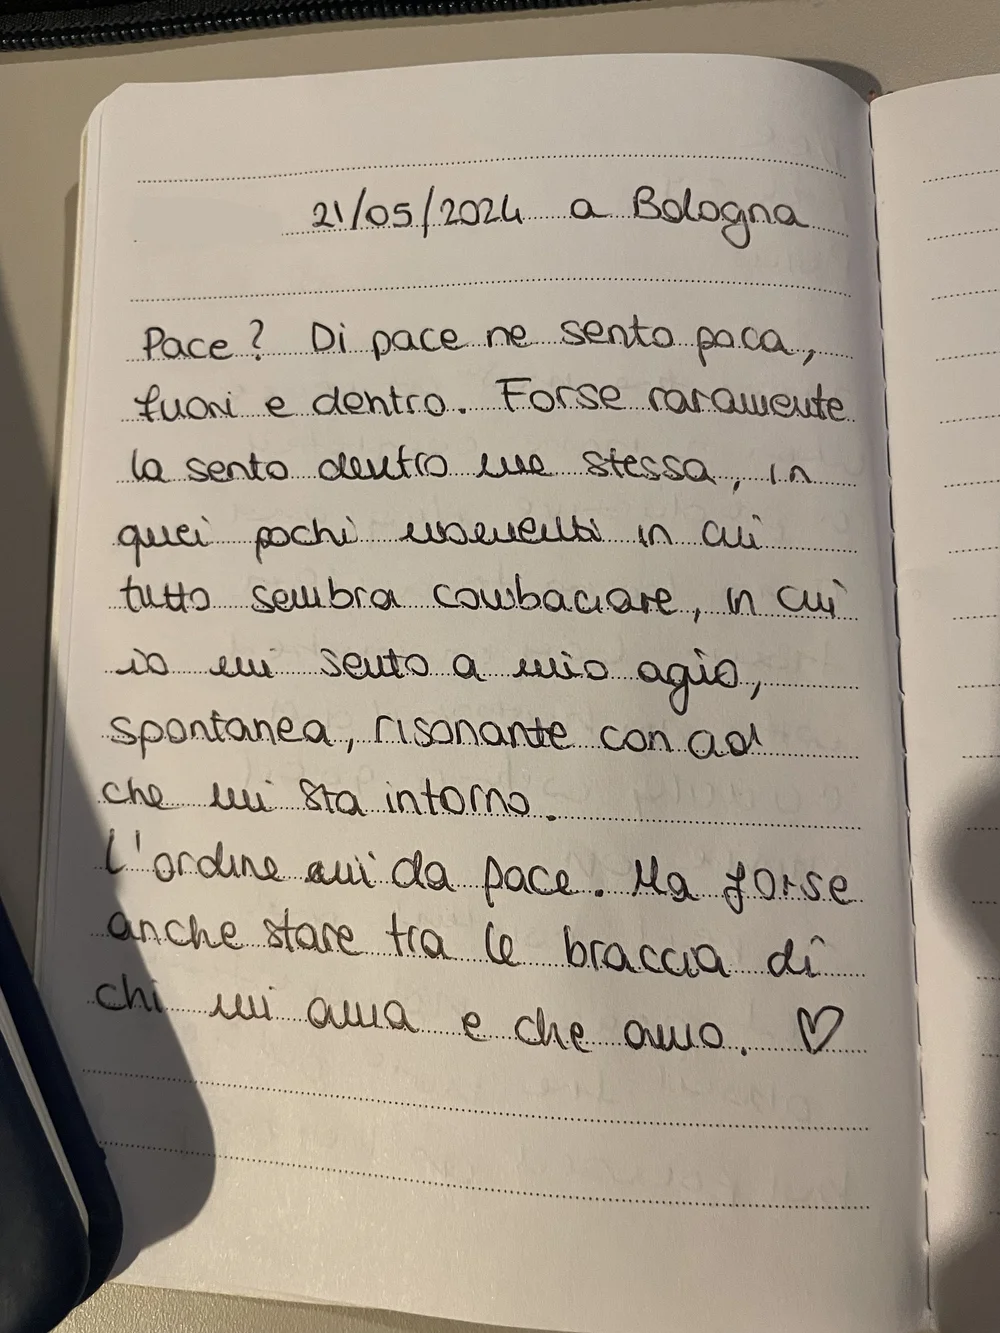 21/05/2024 a Bologna
Pace? Di pace ne sento poca,
fuori e dentro. Forse raramente
la sento dentro me stessa, in
quei pochi momenti in cui
tutto sembra combaciare, in cui
io mi sento a mio agio,
spontanea, risonante con ciò
che mi sta intorno.
L'ordine mi da pace. Ma forse
anche stare tra le braccia di
chi mi ama e che amo. ♡